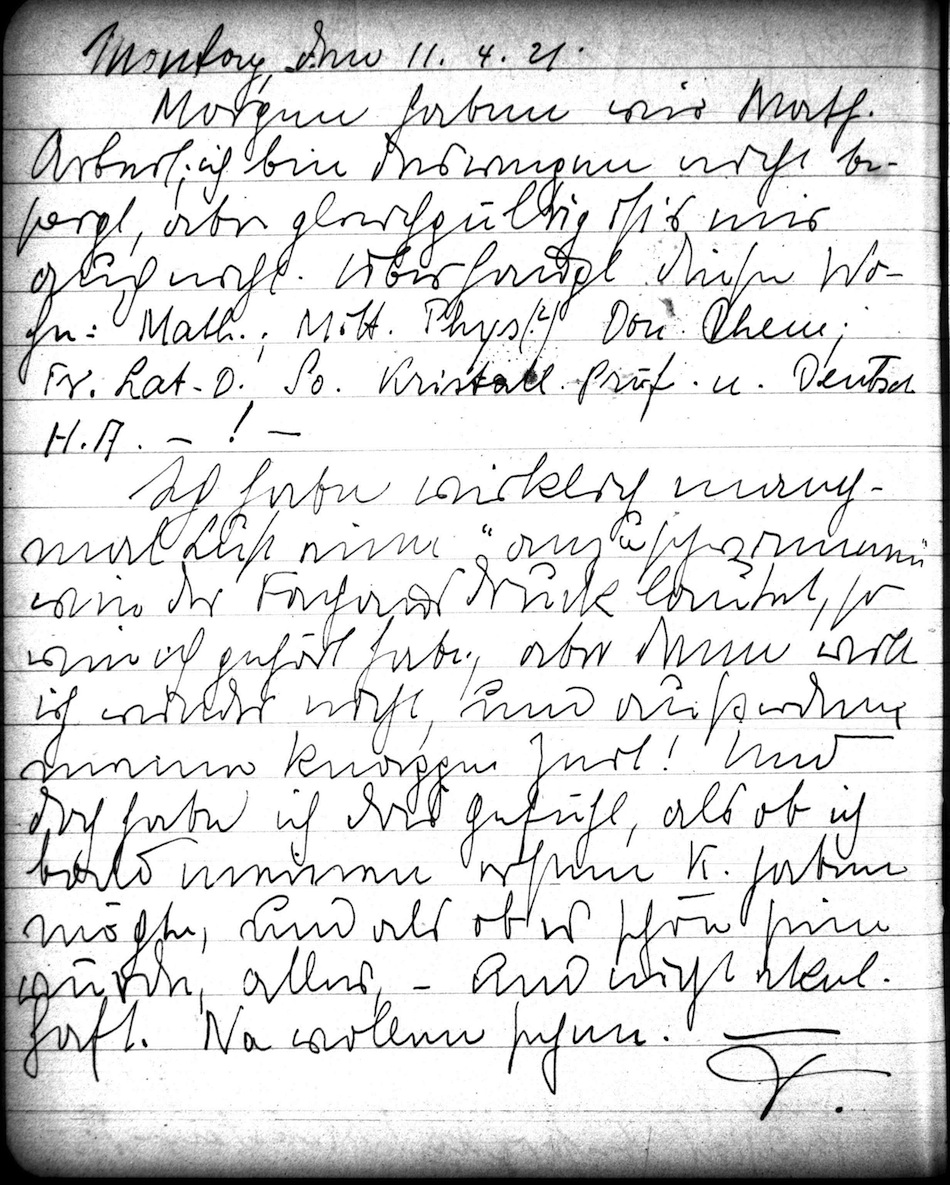 Montag, den 11. 4. 21.
Morgen haben wir Math.
Arbeit; ich bin deswegen nicht be-
sorgt, aber gleichgültig ist's mir
auch nicht. Überhaupt diese Wo-
che: Math.; Mitt. Phys(?) Don Chem;
Fr. Lat-D. So. Kristall Prüf. u. Deutsch
H.A. – ! –
Ich habe wirklich manch-
mal Lust eine "anzu
wie der Fachausdruck lautet, so
wie ich gehört habe, aber denn will
ich wieder nicht, und außerdem
meine knappe Zeit! Und
doch habe ich das Gefühl, als ob ich
bald meinen ersten K. haben
möchte, und als ob es schön sein
würde, alles, – und nicht ekel-
haft. Na wollen sehen.